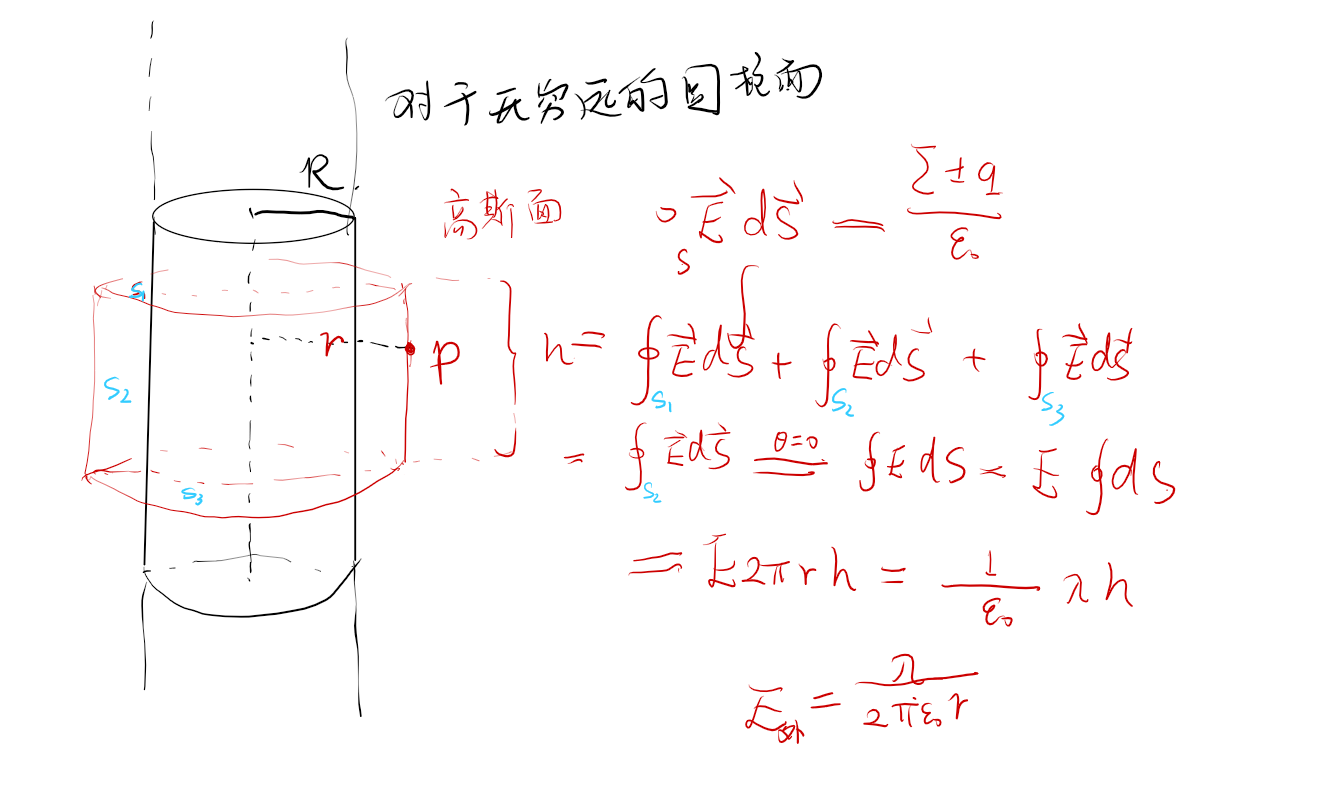 对于无穷远的圆柱面
R
高斯面 ∮_S E⃗ dS⃗ = Σ±q / ε₀
S₁
r P } h = ∮_S₁ E⃗dS⃗ + ∮_S₂ E⃗dS⃗ + ∮_S₃ E⃗dS⃗
S₂
= ∮_S₂ E⃗dS⃗ =(θ=0)= ∮EdS = E∮dS
S₃
= E2πrh = 1/ε₀ λh
E外 = λ / 2πε₀r